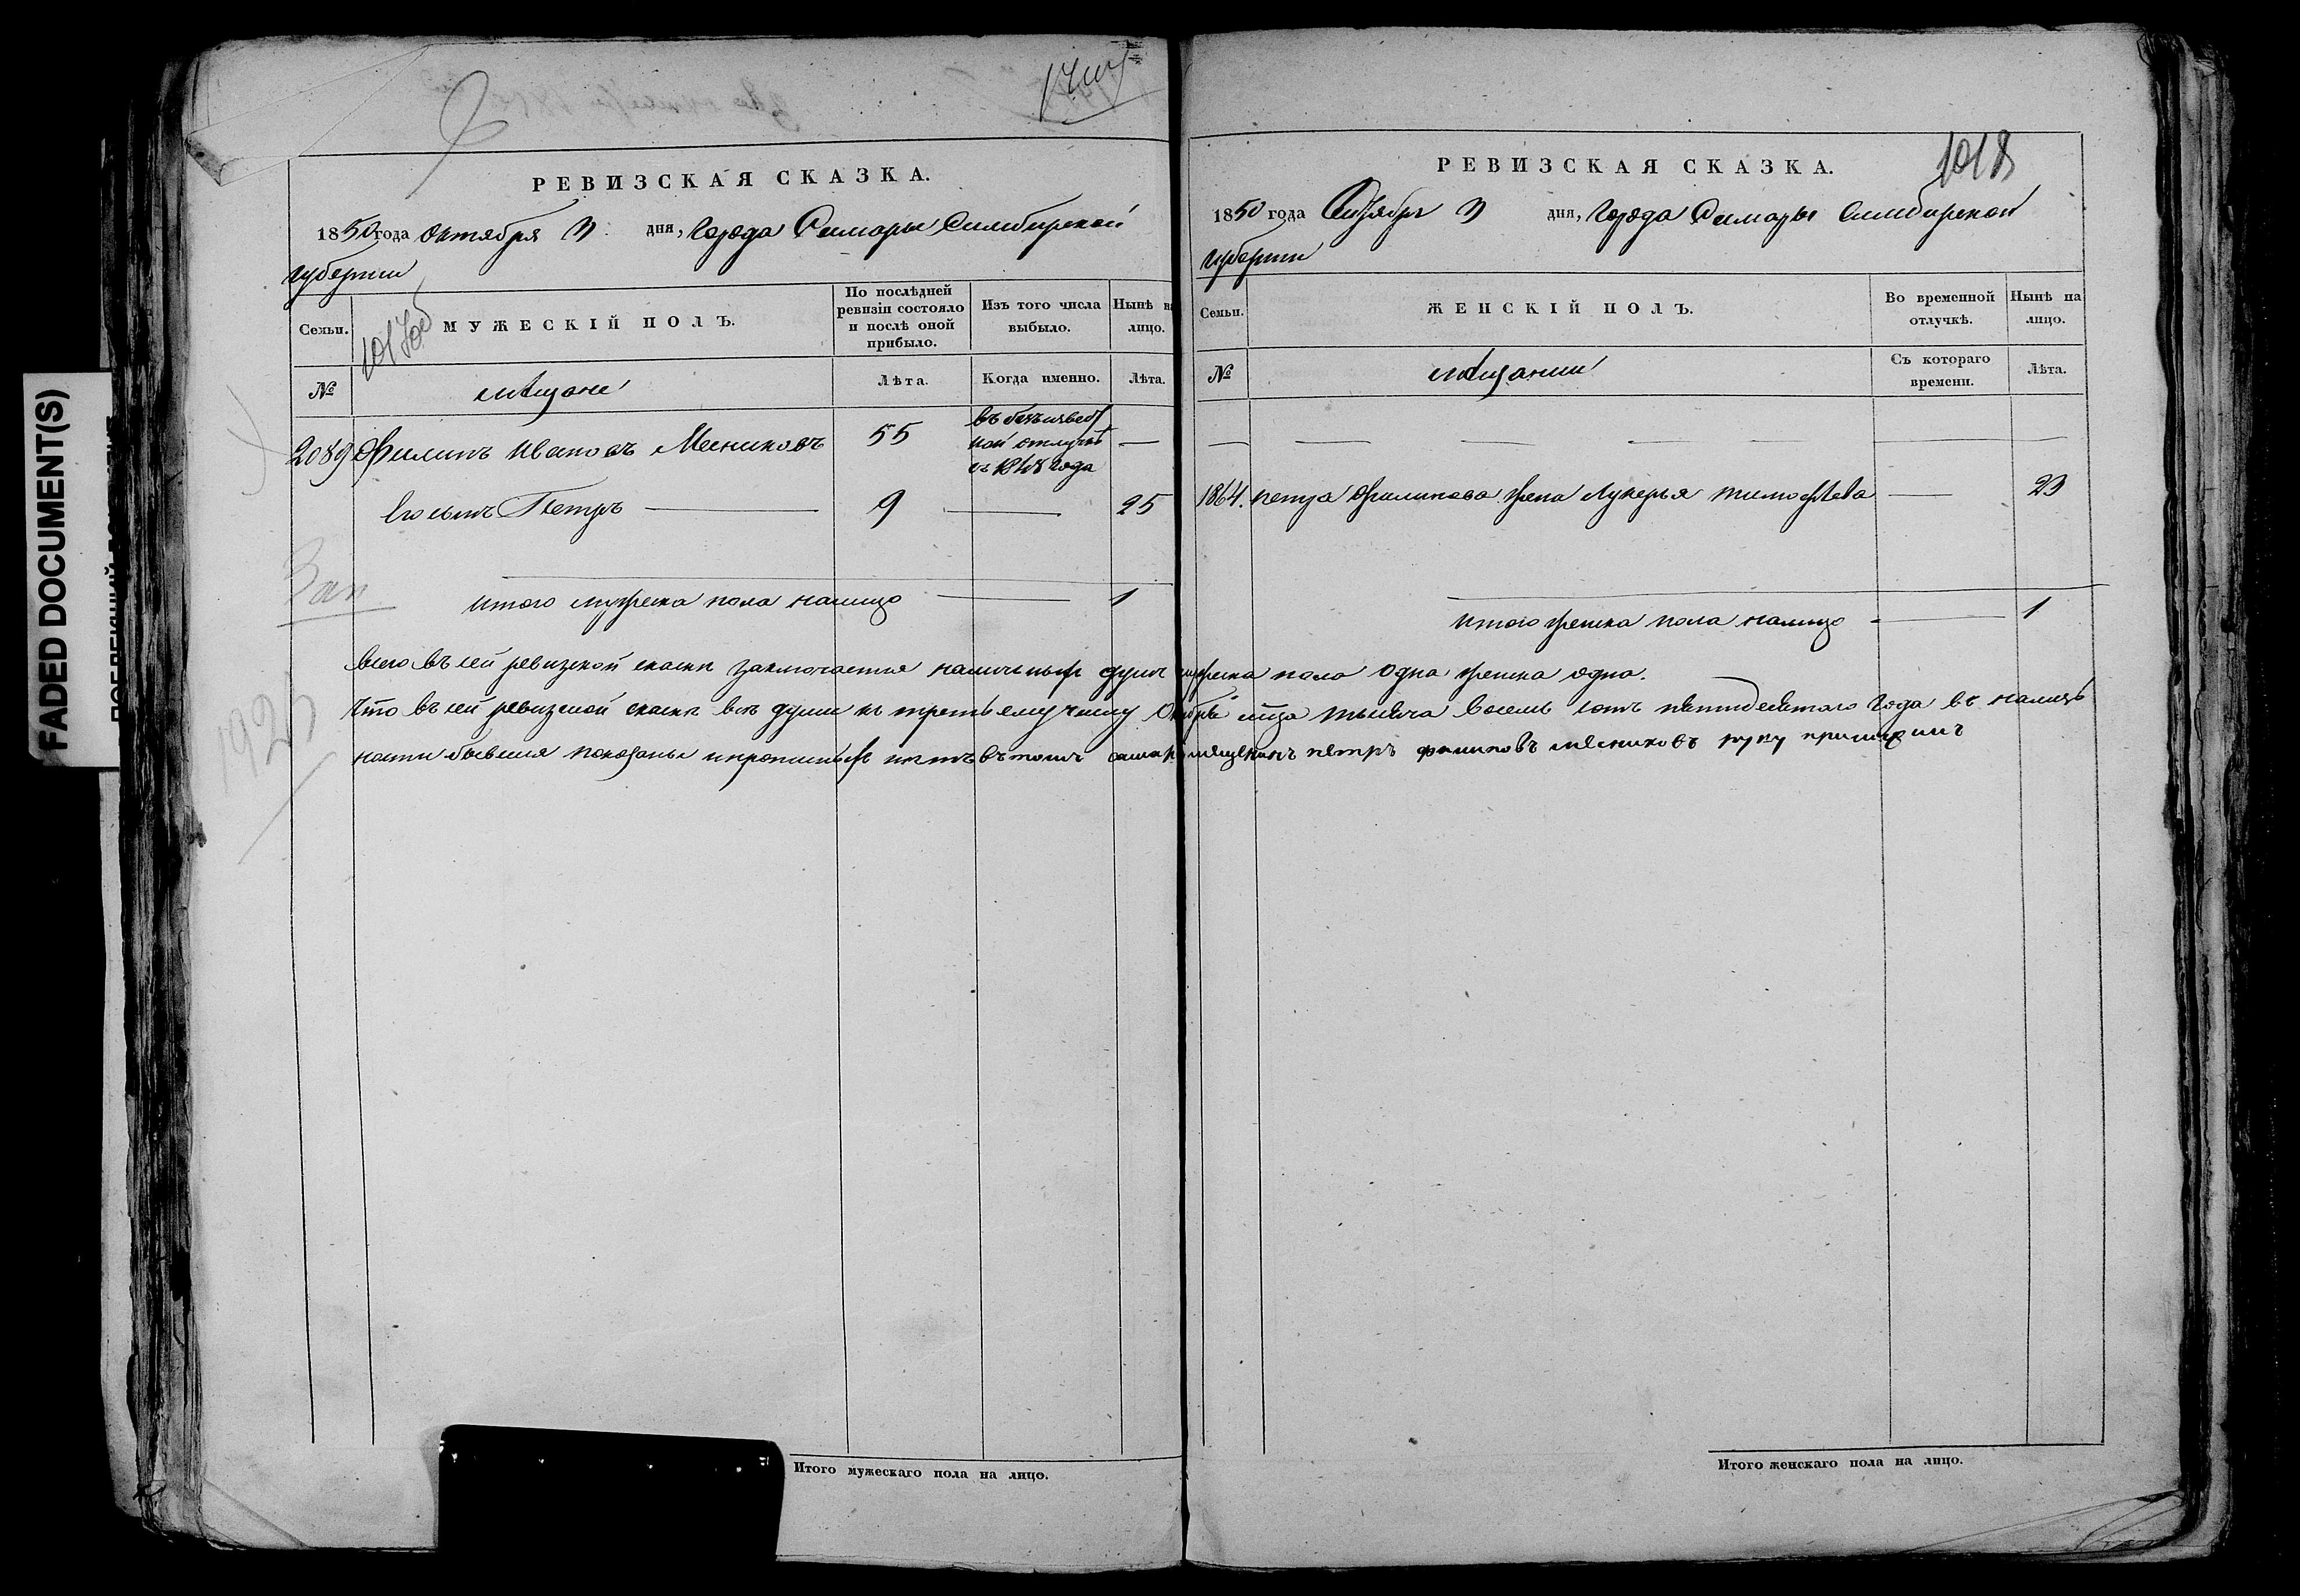 FADED DOCUMENT(S)
РЕВИЗСКАЯ СКАЗКА.
1850 года Октября 3 дня, Города Самары Симбирской
губернии
Семьи.
МУЖЕСКІЙ ПОЛЪ.
По послѣдней
ревизіи состояло
и послѣ оной
прибыло.
Изъ того числа
выбыло.
Нынѣ на
лицо.
№
мѣщане
Лѣта.
Когда именно.
Лѣта.
2089 Филипъ Ивановъ Месниковъ
55
въ безъизвест
ной отлучкѣ
съ 1848 года
—
Его сынъ Петръ
9
—
25
Зап
итого мужеска пола налицо
1
РЕВИЗСКАЯ СКАЗКА.
1018
1850 года Октября 3 дня, Города Самары Симбирской
губернии
Семьи.
ЖЕНСКІЙ ПОЛЪ.
Во временной
отлучкѣ.
Нынѣ на
лицо.
№
мѣщанки
Съ котораго
времени.
Лѣта.
1864. петра Филипова жена Лукерья тимофѣева — 23
итого женска пола налицо
1
всего въ сей ревизской скаски заключается наличныхъ душъ мужеска пола одна, женска одна.
что въ сей ревизской скаски всѣ души къ третьему числу Октября мца тысяча восемь сотъ пятидесятаго года въ налич
ности бывшия показаны и прописныхъ нетъ въ томъ самарской мещенинъ петръ филиповъ месниковъ руку приложилъ
1925
Итого мужескаго пола на лицо.
Итого женскаго пола на лицо.